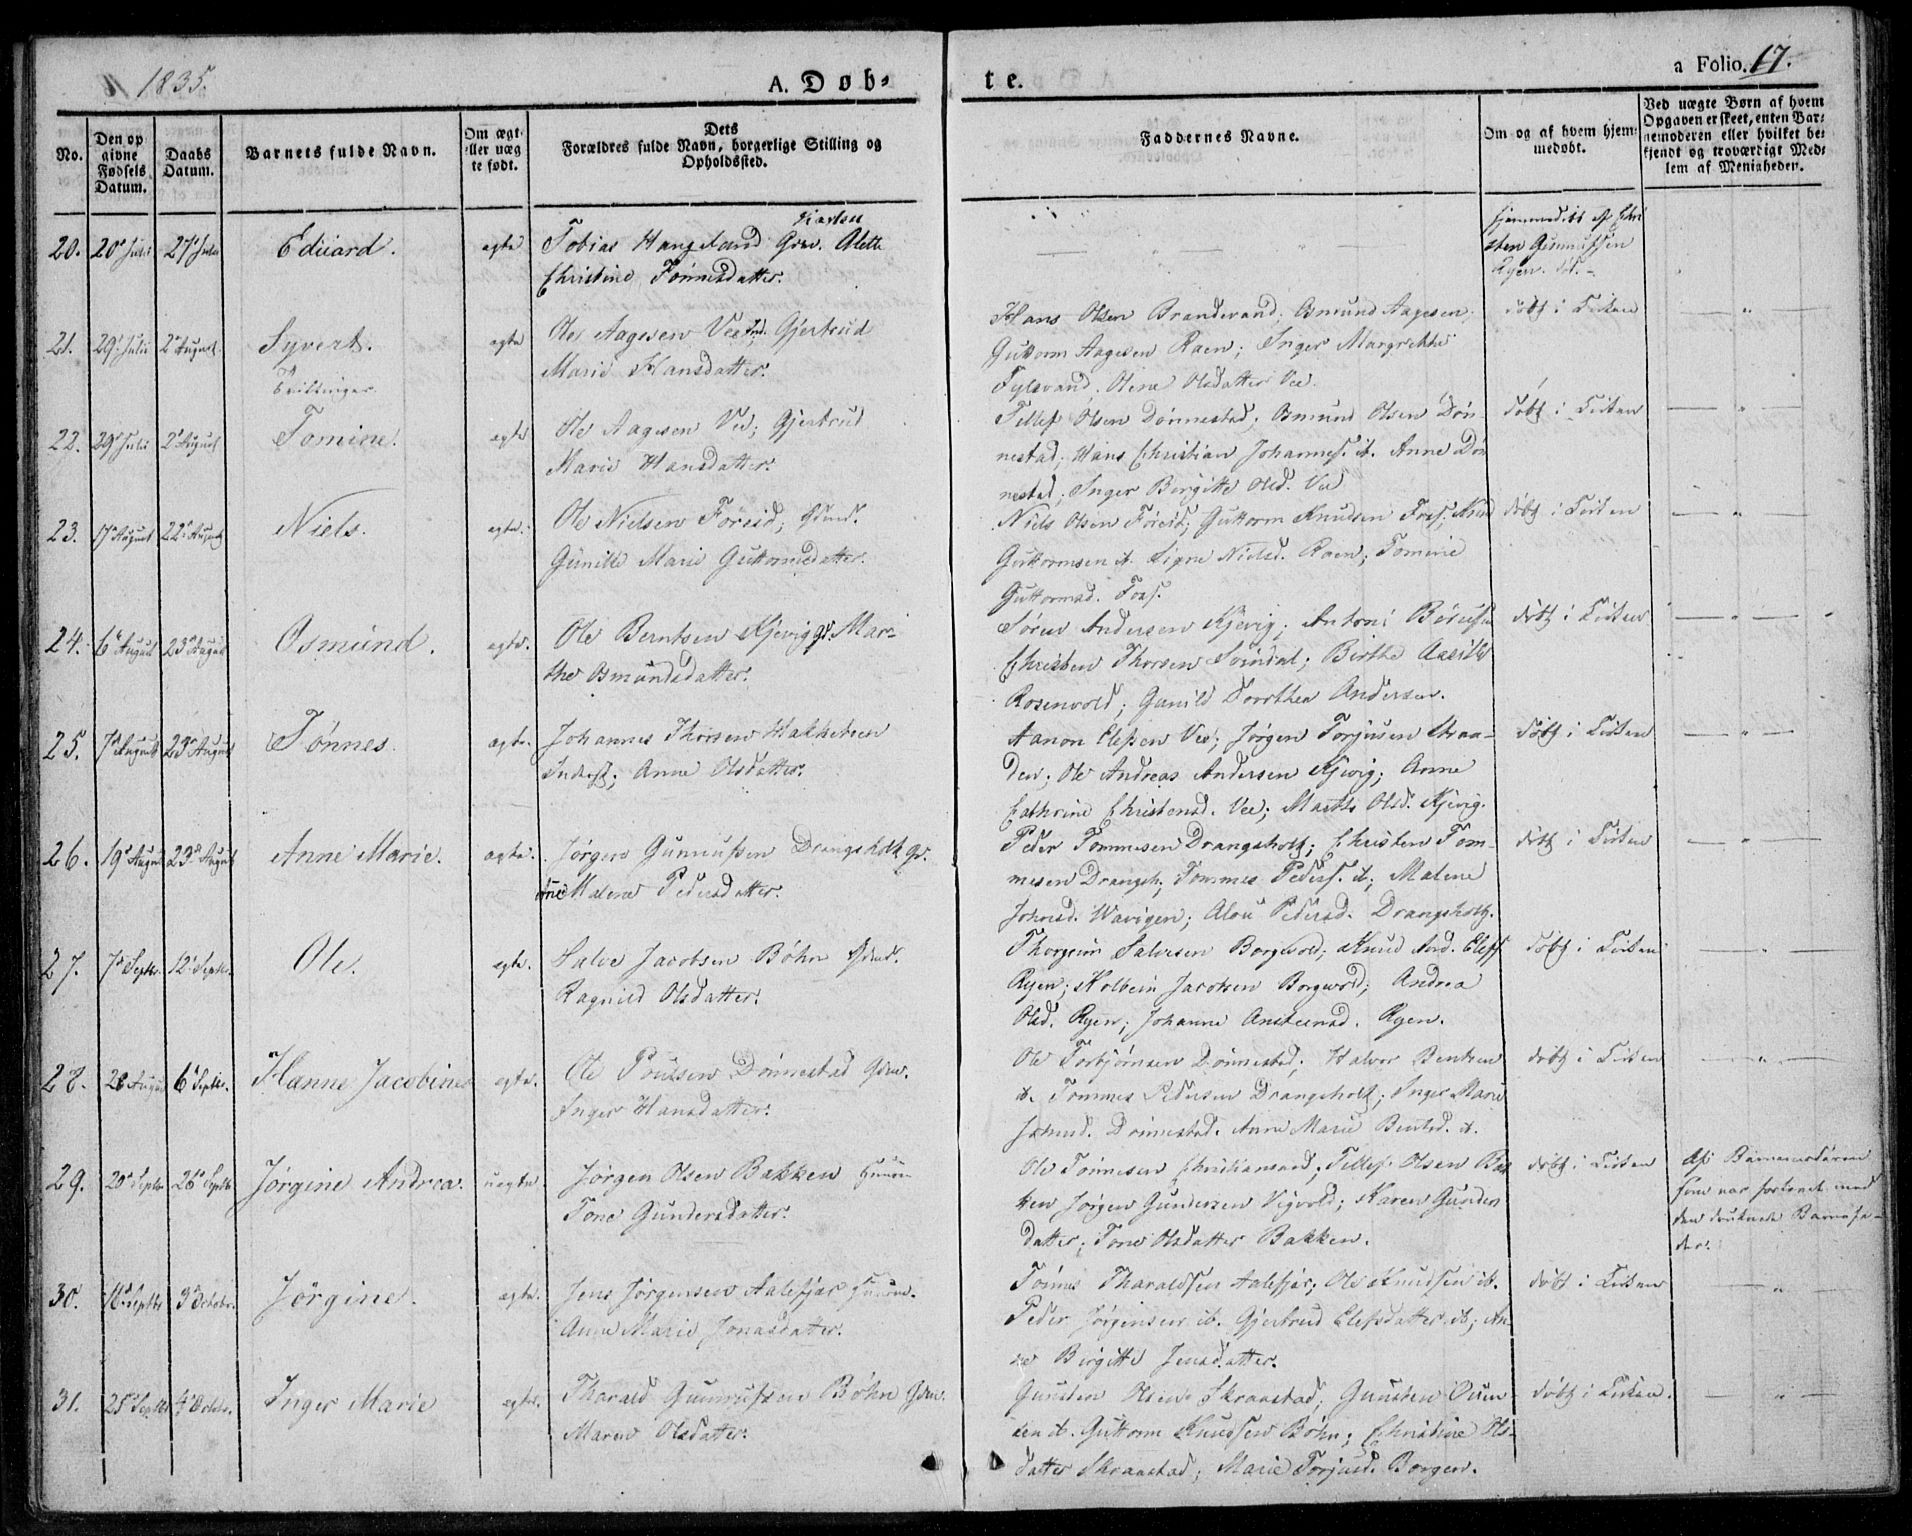 1835.
A. Døb-
te.
a Folio. 17.
No.
Den op
givne
Fødsels
Datum.
Daabs
Datum.
Barnets fulde Navn.
Om ægt-
eller uæg
te født.
Dets
Forældres fulde Navn, borgerlige Stilling og
Opholdssted.
Faddernes Navne.
Om og af hvem hjem-
medøbt.
Ved uægte Børn af hvem
Opgaven er skeet, enten Bar-
nemoderen eller hvilket be-
kjendt og troværdigt Med-
lem af Menigheden.
20. 20 Juli 27 Juli Eduard. ægte
Tobias Hangeland Alette
Christine Tønnesdatter.
hjemmedøbt af Chri
sten Gunnufsen
Ryen.
21. 29 Julii 2 August. Syvert. ægte
Tvillinger.
Ole Aagesen Vee Gjertrud
Marie Hansdatter.
Hans Olsen Brandevand; Osmund Aagesen
Guttorm Aagesen Raen; Inger Margrethe
Fylevand. Olene Olsdatter Vee.
døbt i Kirken
22. 29 Julii 2 August Tomine. ægte
Ole Aagesen Vee; Gjertrud
Marie Hansdatter.
Tellef Olsen Dønnestad; Osmund Olsen Døn-
nestad; Hans Christian Johannes. it. Anne Døn
nestad; Inger Birgitte Olsd. Vee
døbt i Kirken
23. 17 August 22 August Niels. ægte.
Ole Nielsen Foreid;
Gunille Marie Guttormsdatter.
Niels Olsen Foreid; Guttorm Knudsen Foss. Knud
Guttormsen it. Signe Nielsd. Raen; Tomine
Guttormsd. Foss.
døbt i Kirken
24. 6 August 23 August Osmund. ægte.
Ole Berntsen Kjevig gr. Mar-
the Osmundsdatter.
Søren Andersen Kjevig; Antoni
Christen Thorsen Birthe
Rosenvold; Gunild Dorthea Andersen.
døbt i Kirken
25. 7 August 23 August Tønnes. ægte.
Johannes Thorsen
Inderst; Anne Olsdatter.
Aanon Elefsen Vee; Jørgen Torjusen Straa-
den; Ole Andreas Andersen Kjevig; Anne
Cathrine Christensd. Vee; Marthe Olsd. Kjevig.
døbt i Kirken
26. 19 August 23 August Anne Marie. ægte.
Jørgen Gunnufsen Drangsholt gr.
Anne Malene Pedersdatter.
Peder Tommesen Drangsholt; Christen Tom-
mesen Drangsh; Tommes Peders. it; Malene
Johnsd. Wavigen; Pedersd. Drangsholt.
døbt i Kirken
27. 7 Septbr. 12 Septbr. Ole. ægte.
Salve Jacobsen Bøhn
Ragnild Olsdatter.
Thorgrim Salvesen Borgvold; Knud And. Elefs
Ryen; Kolbein Jacobsen Borgvold; Andrea
Olsd. Ryen; Johanne Ansteensd. Ryen.
døbt i Kirken
28. 28 August 6 Septbr. Hanne Jacobine ægte.
Ole Poulsen Dønnestad
Inger Hansdatter.
Ole Torbjørnsen Dønnestad; Halvor Bentsen
it. Tommes Pedersen Drangsholt; Inger Marie
Johnsd. Dønnestad. Anne Marie Bentsd. it.
døbt i Kirken
29. 20 Septbr 26 Septbr Jørgine Andrea. uægte.
Jørgen Olsen Bakken
Tone Gundersdatter.
Ole Tønnesen Christiansand; Tellef Olsen Bak
ken Jørgen Gundersen Vigvold; Karen Gunders
datter; Tone Olsdatter Bakken.
døbt i Kirken
Af Barnemoderen
som var forlovet med
den druknede Barnefa-
der.
30. 16 Septbr 3 Octobr. Jørgine. ægte.
Jens Jørgensen Aalefjær
Anne Marie Jonasdatter.
Tønnes Tharaldsen Aalefjær; Ole Knudsen it.
Peder Jørgensen it. Gjertrud Elefsdatter it; An-
ne Birgitte Jensdatter.
døbt i Kirken
31. 25 Septbr 4 Octobr. Inger Marie ægte.
Tharald Gunnufsen Bøhn
Maren Olsdatter.
Gunsten Olsen Skraastad; Gunsten
sen it. Guttorm Knudsen Bøhn; Christine Ols-
datter Skraastad; Marie Torjusd. Borgen.
døbt i Kirken.